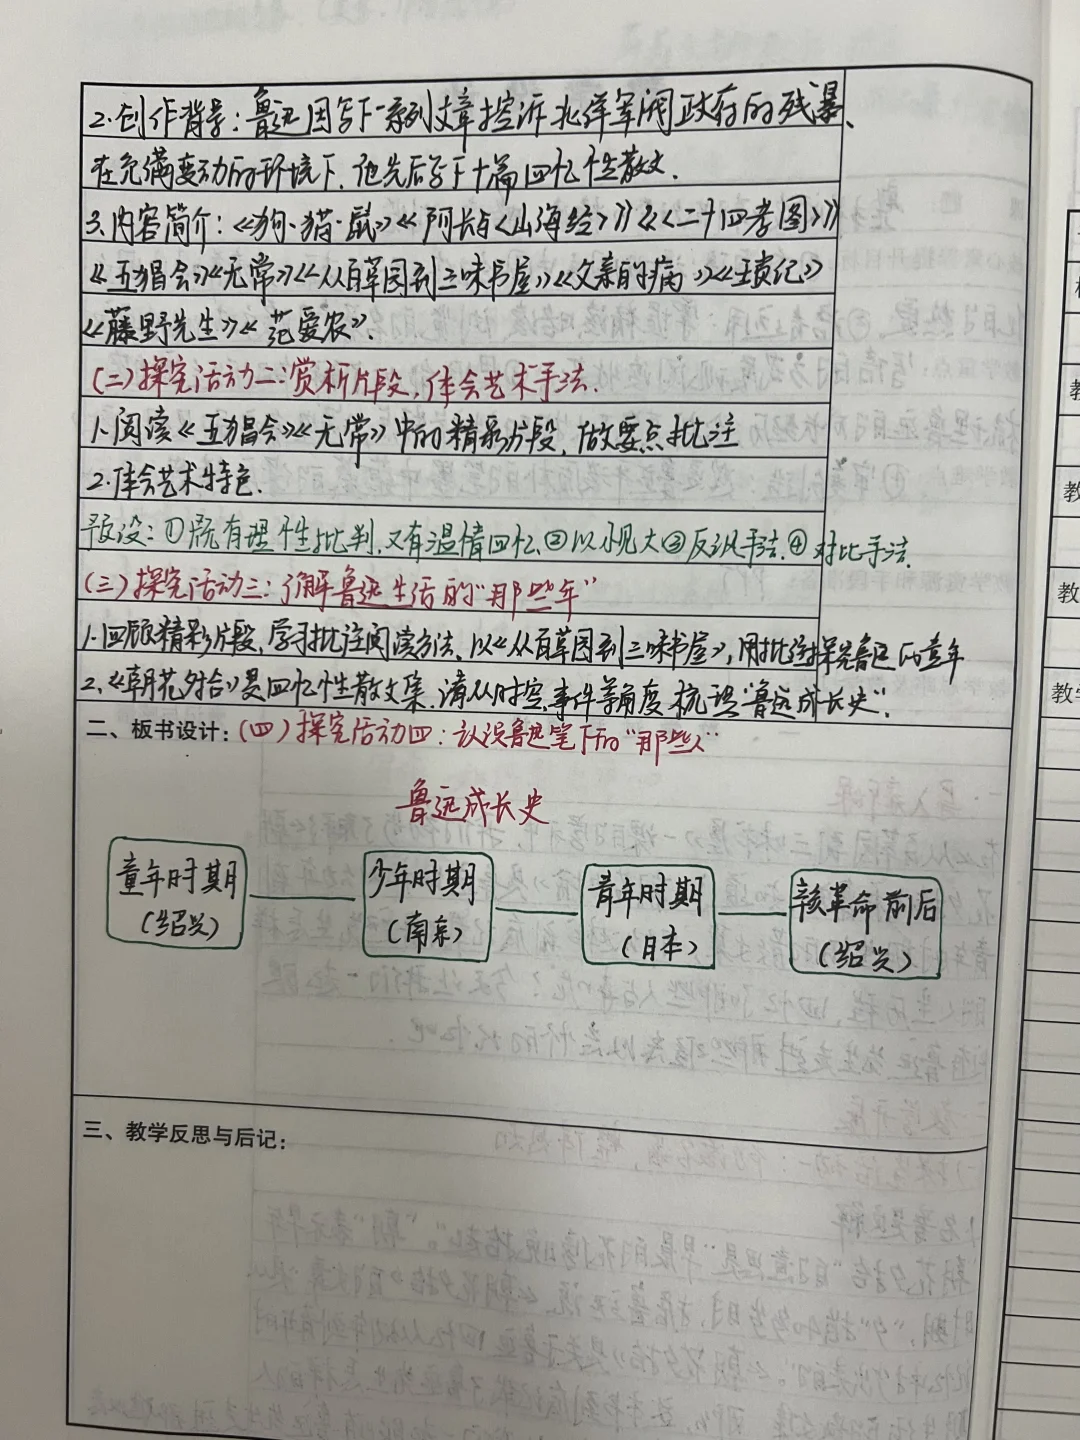 2.创作背景：鲁迅因写下一系列文章控诉北洋军阀政府的残暴、
在充满变动的环境下，他先后写下十篇回忆性散文.
3.内容简介：《狗·猫·鼠》《阿长与〈山海经〉》《〈二十四孝图〉》
《五猖会》《无常》《从百草园到三味书屋》《父亲的病》《琐记》
《藤野先生》《范爱农》.
(二)探究活动二：赏析片段，体会艺术手法.
1.阅读《五猖会》《无常》中的精彩片段，做要点批注
2.体会艺术特色.
预设：①既有理性批判，又有温情回忆.②以小见大③反讽手法.④对比手法.
(三)探究活动三：了解鲁迅生活的“那些年”
1.回顾精彩片段，学习批注阅读方法、以《从百草园到三味书屋》，用批注探究鲁迅的童年
2.《朝花夕拾》是回忆性散文集.请从时空.事件等角度梳理“鲁迅成长史”.
二、板书设计：(四)探究活动四：认识鲁迅笔下的“那些人”
鲁迅成长史
童年时期 少年时期 青年时期 辛亥革命前后
(绍兴) (南京) (日本) (绍兴)
三、教学反思与后记：